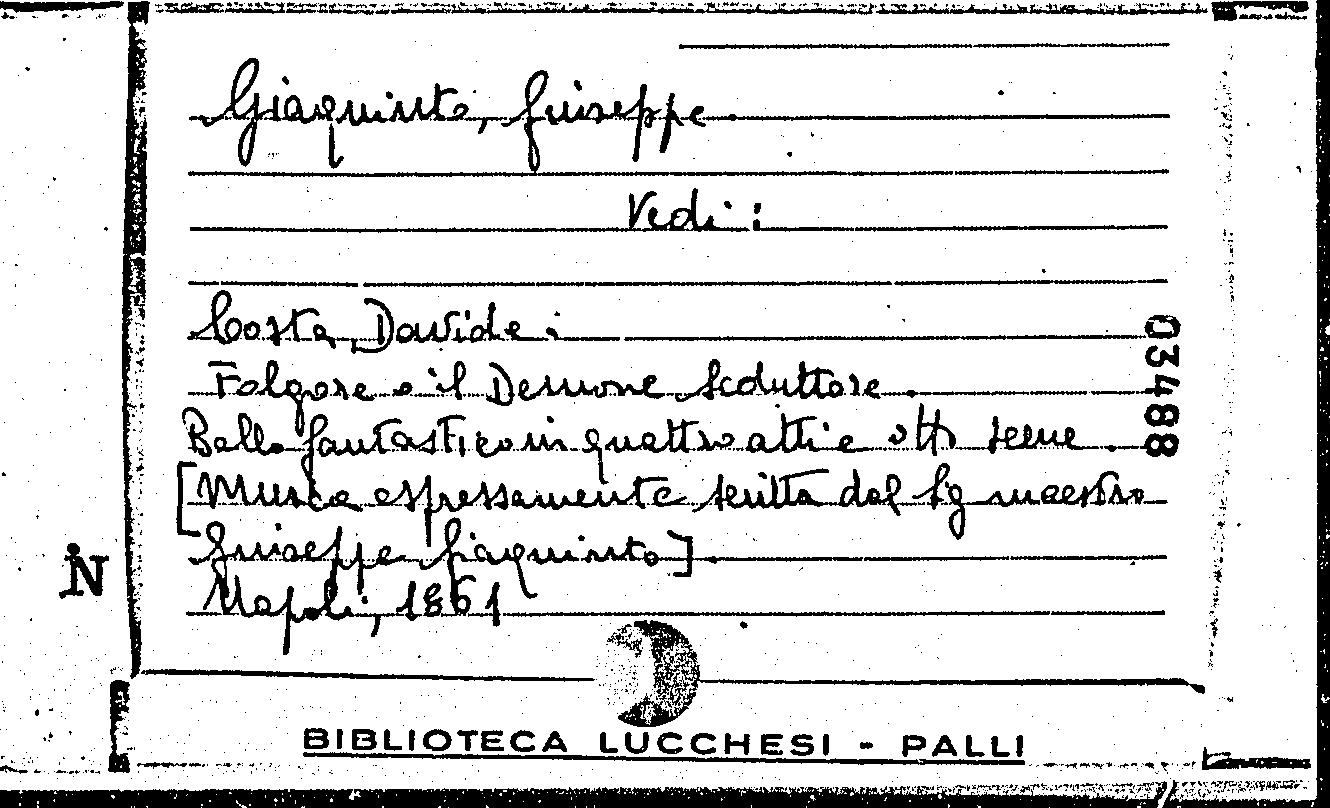 Giaquinto, Giuseppe.
Vedi:
Costa, Davide.
Folgore o il Demone seduttore.
Ballo fantastico in quattro atti e otto scene.
[Musica espressamente scritta dal Sg maestro
Giuseppe Giaquinto].
Napoli, 1861
03488
IN
BIBLIOTECA LUCCHESI - PALLI